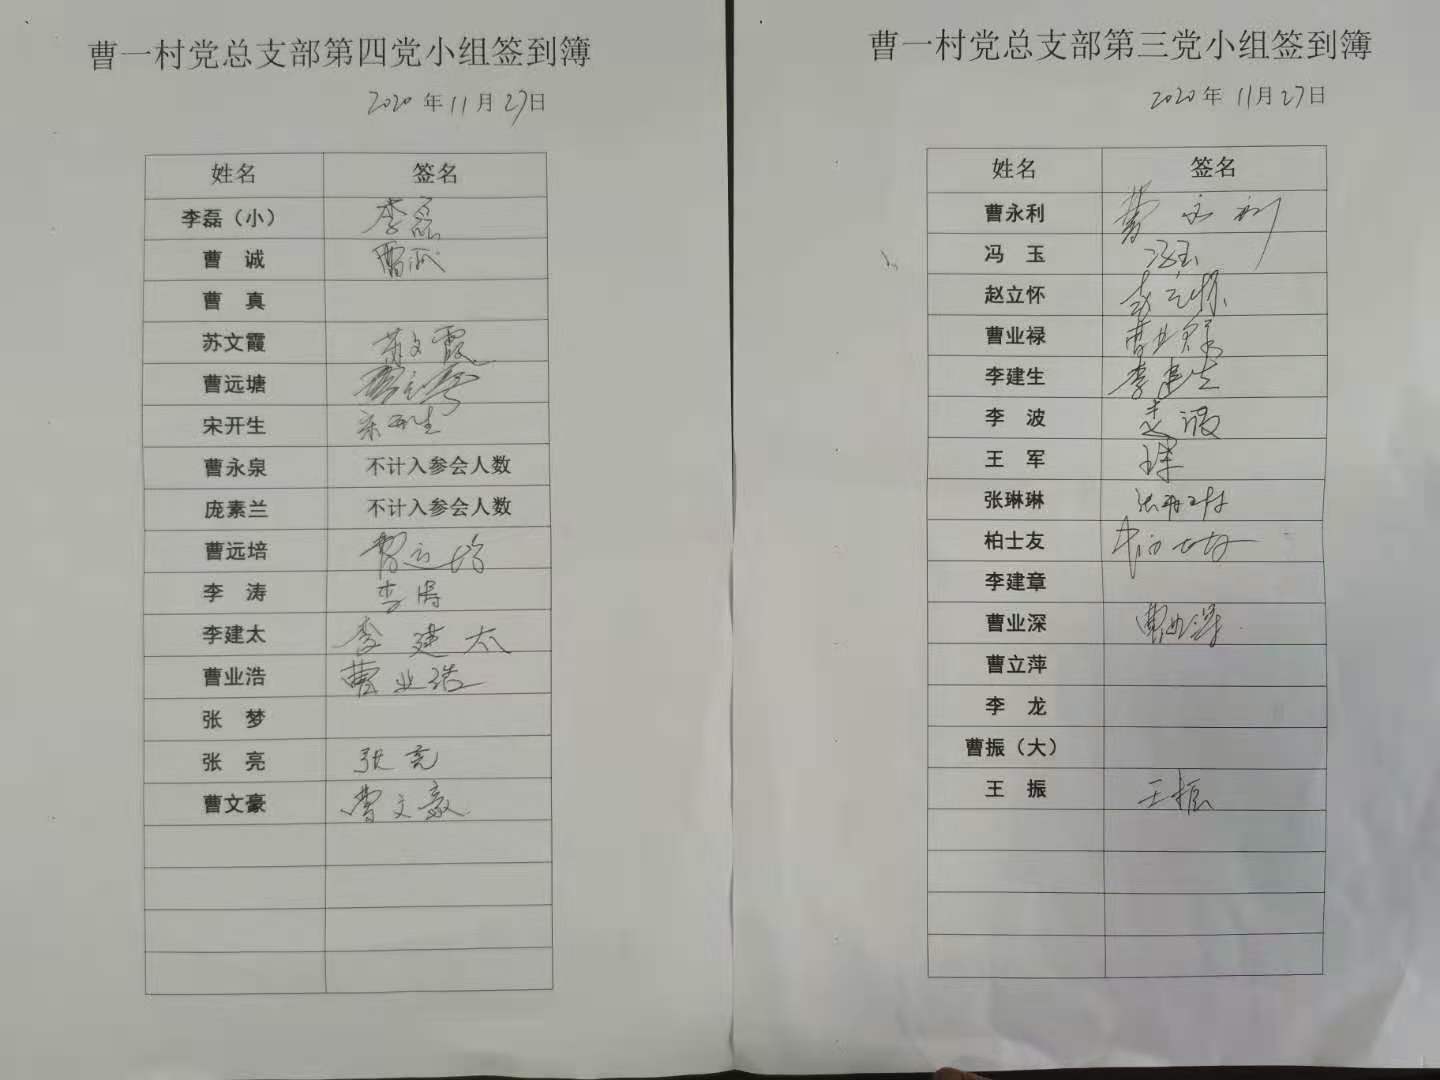 曹一村党总支部第四党小组签到簿
2020年11月27日
姓名 签名
李磊（小） 李磊
曹 诚 曹诚
曹 真
苏文霞 苏文霞
曹远塘
宋开生 宋开生
曹永泉 不计入参会人数
庞素兰 不计入参会人数
曹远培 曹远培
李 涛 李涛
李建太 李建太
曹业浩 曹业浩
张 梦
张 亮 张亮
曹文豪 曹文豪
曹一村党总支部第三党小组签到簿
2020年11月27日
姓名 签名
曹永利 曹永利
冯 玉 冯玉
赵立怀 赵立怀
曹业禄 曹业禄
李建生 李建生
李 波
王 军 王军
张琳琳 张琳琳
柏士友 柏士友
李建章
曹业深 曹业深
曹立萍
李 龙
曹振（大）
王 振 王振